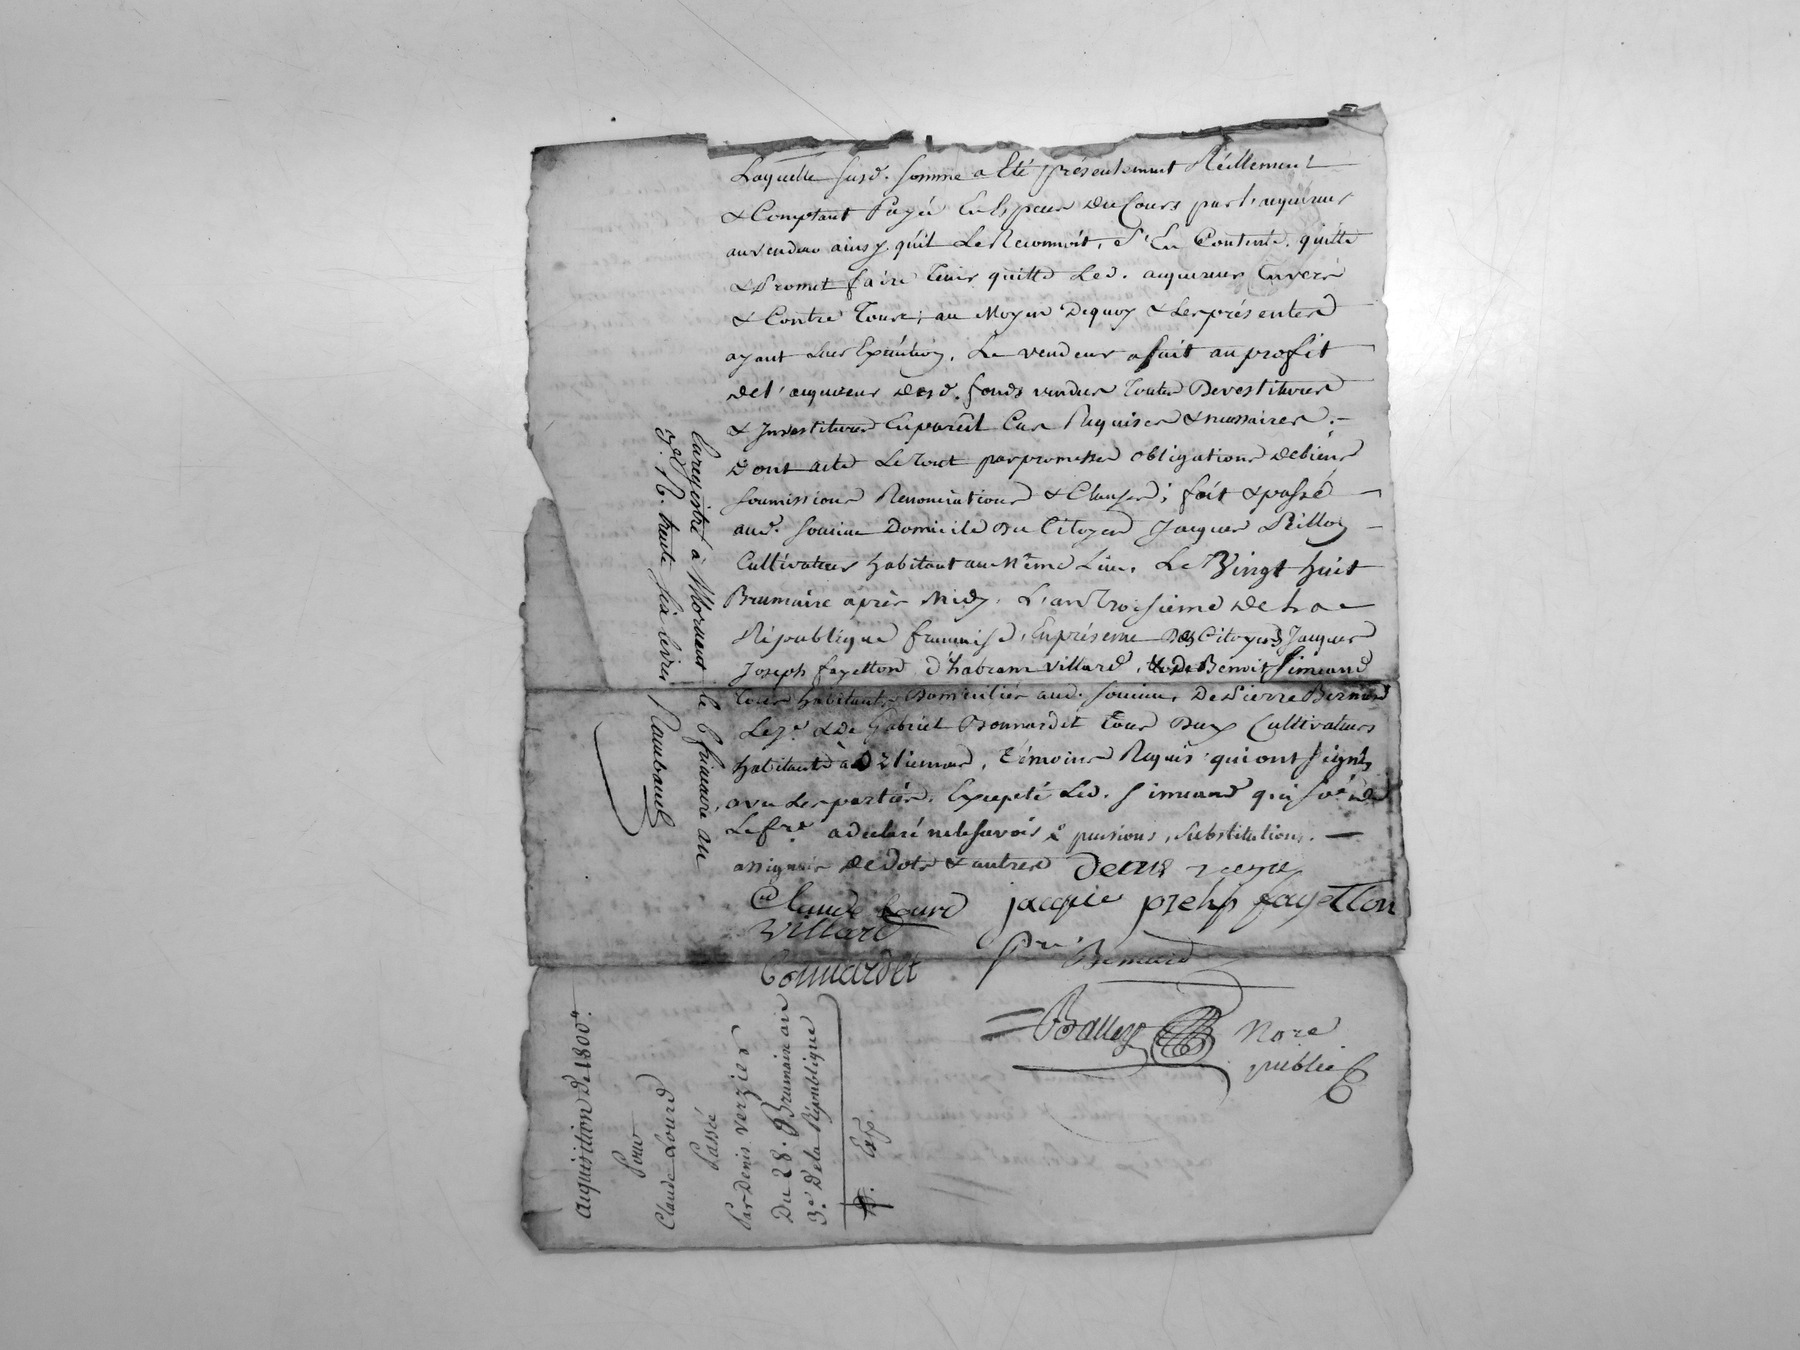 Laquelle susd. somme a Eté présentement Réellement
& Comptant Payée En Espece du Cours par l'aquereur
au vendeur ainsy qu'il Le Reconnoit, s'En Contente, quitte
& Promet faire tenir quitte Led. aquereur Envers
& Contre Tous; au Moyen Dequoy & des présentes
ayant leur Exécution, Le vendeur a fait au profit
de l'aquereur desd. fonds vendus Toutes Devestitures
& Investitures En pareil Cas Requises & necessaires. —
Dont acte Le Tout par promesses obligations de biens
soumissions Renonciations & Clauses; fait & passé
aud. Domicile du Citoyen Jacques
Cultivateur habitant au Même Lieu, Le Vingt huit
Brumaire après Midy, L'an Troisieme de La
République françoise, En présence des Citoyens Jacques
Joseph fayetton, d'habram Villard, de Benoit Simeand
tous habitants Domiciliés aud. De Pierre Bernard
Le je. & De Gabriel Bonnardet tous Deux Cultivateurs
habitants à , Témoins Requis qui ont signés
avec Les parties, Excepté Led. Simeand qui
a déclaré ne le savoir , substitutions. —
assignats de dots & autres
Claude Lourd jacque fayetton
Villard
Pre. Bernard
Bonnardet
Nore
public
Enregistré à Mornant le 6 frimaire an
3e. R. trente six livres
aquisition de 1800lt.
Pour
Claude Lourd
Passée
Par Denis Verzier
Du 28. Brumaire
3.e De la République
Exp.